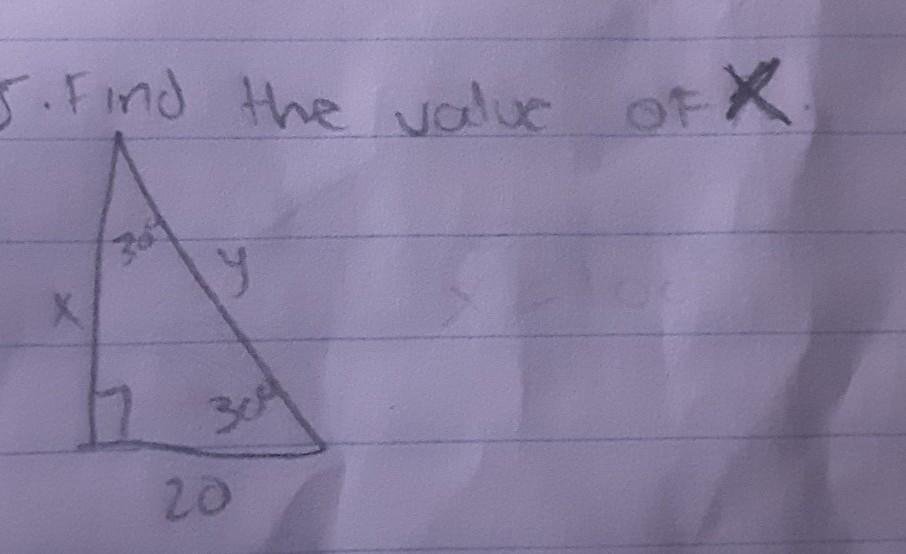 5. Find the value of X.
30°
y
x
30°
20